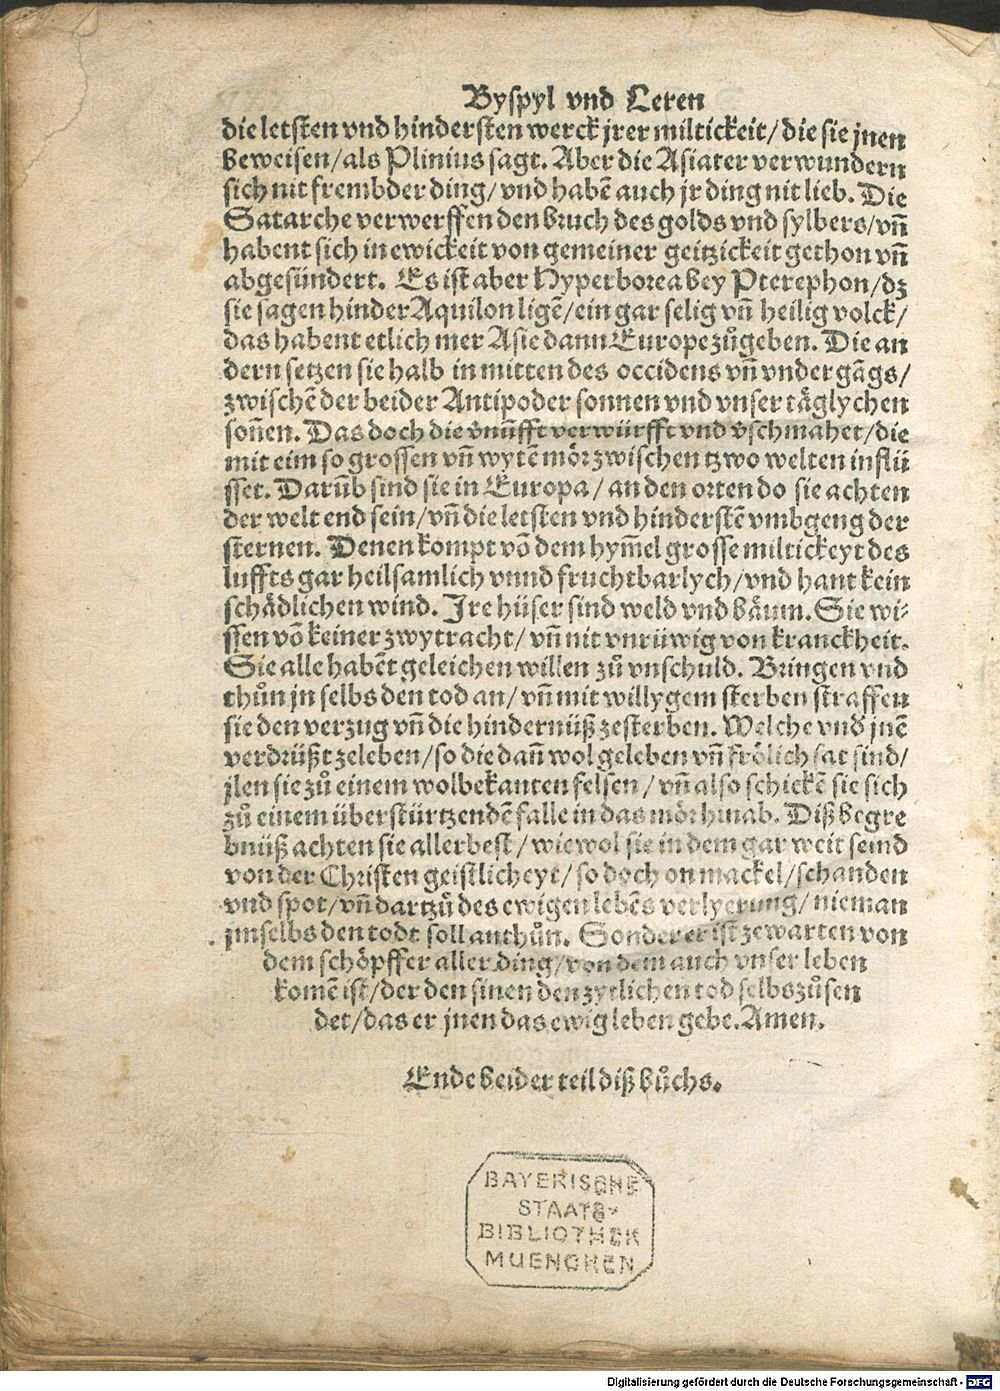 Byspyl vnd Leren
die letsten vnd hindersten werck jrer miltickeit/ die sie jnen
beweisen/ als Plinius sagt. Aber die Asiater verwundern
sich nit frembder ding/ vnd habē auch jr ding nit lieb. Die
Satarche verwerffen den bruch des golds vnd sylbers/ vn̄
habent sich in ewickeit von gemeiner geitzickeit gethon vn̄
abgesündert. Es ist aber Hyperborea bey Pterephon/ dz
sie sagen hinder Aquilon ligē/ ein gar selig vn̄ heilig volck/
das habent etlich mer Asie dann Europe zůgeben. Die an
dern setzen sie halb in mitten des occidens vn̄ vndergāgs/
zwischē der beider Antipoder sonnen vnd vnser täglychen
son̄en. Das doch die vnūfft verwürfft vnd v̄schmahet/ die
mit eim so grossen vn̄ wytē mör zwischen tzwo welten inflü
sset. Darūb sind sie in Europa/ an den orten do sie achten
der welt end sein/ vn̄ die letsten vnd hinderstē vmbgeng der
sternen. Denen kompt vō dem hym̄el grosse miltickeyt des
luffts gar heilsamlich vnnd fruchtbarlych/ vnd hant kein
schädlichen wind. Ire hüser sind weld vnd bäum. Sie wi-
ssen vō keiner zwytracht/ vn̄ nit vnrüwig von kranckheit.
Sie alle habēt geleichen willen zů vnschuld. Bringen vnd
thůn jn selbs den tod an/ vn̄ mit willygem sterben straffen
sie den verzug vn̄ die hindernüß zesterben. Welche vnd jnē
verdrüßt zeleben/ so die dan̄ wol geleben vn̄ frölich sat sind/
jlen sie zů einem wolbekanten felsen/ vn̄ also schickē sie sich
zů einem überstürtzendē falle in das mör hinab. Diß begre
bnüß achten sie allerbest/ wie wol sie in dem gar weit seind
von der Christen geistlicheyt/ so doch on mackel/ schanden
vnd spot/ vn̄ dartzů des ewigen lebēs verlyerung/ nieman
jmselbs den todt soll anthůn. Sonder er ist zewarten von
dem schöpffer aller ding/ von dem auch vnser leben
komē ist/ der den sinen den zytlichen tod selbs zůsen
det/ das er jnen das ewig leben gebe. Amen.
Ende beider teil diß bůchs.
BAYERISCHE
STAATS-
BIBLIOTHEK
MUENCHEN
Digitalisierung gefördert durch die Deutsche Forschungsgemeinschaft - DFG